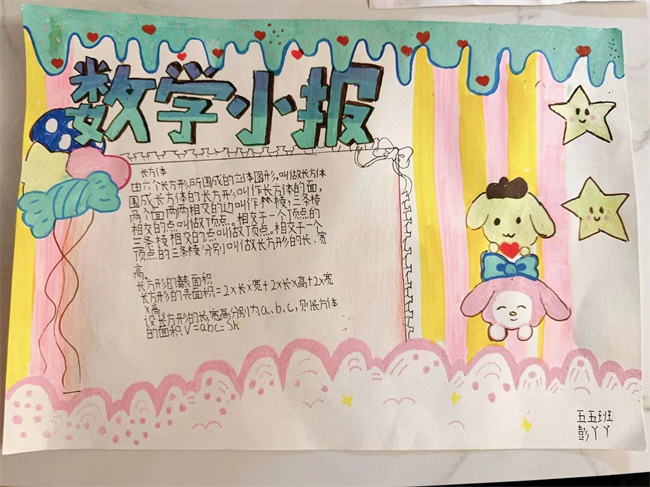 数学小报
长方体
由六个长方形所围成的立体图形,叫做长方体
围成长方体的长方形叫作长方体的面,
两个面两两相交的边叫作棱;三条棱
相交的点叫做顶点。相交于一个顶点的
三条棱相交的点叫做顶点。相交于一个
顶点的三条棱分别叫做长方形的长、宽
高。
长方形的表面积
长方形的表面积=2x长x宽+2x长x高+2x宽
x高
设长方形的长宽高分别为a.b.c,则长方体
的面积V=abc=Sh
五五班
彭丫丫